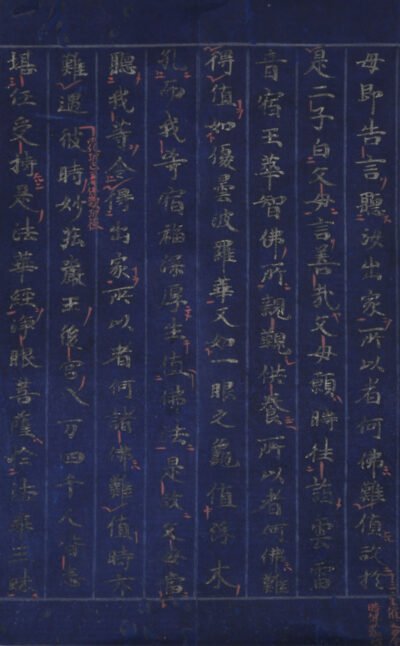 母即告言聽汝出家所以者何佛難值故於
是二子白父母言善哉父母願時往詣雲雷
音宿王華智佛所親覲供養所以者何佛難
得值如優曇波羅華又如一眼之龜值浮木
孔而我等宿福深厚生值佛法是故父母當
聽我等令得出家所以者何諸佛難值時亦
難遇彼時妙莊嚴王後宮八万四千人皆悉
堪任受持是法華經淨眼菩薩於法華三昧